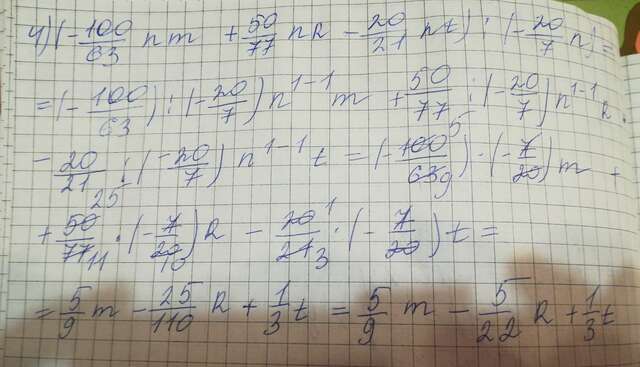 4) (-100/63 nm + 50/77 nk - 20/21 nt) : (-20/7 n) =
= (-100/63) : (-20/7) n^1-1 m + 50/77 : (-20/7) n^1-1 k -
- 20/21 : (-20/7) n^1-1 t = (-100 5/63 9) · (-7/20) m +
+ 50 25/77 11 · (-7/20 10) k - 20 1/21 3 · (-7/20) t =
= 5/9 m - 25/110 k + 1/3 t = 5/9 m - 5/22 k + 1/3 t